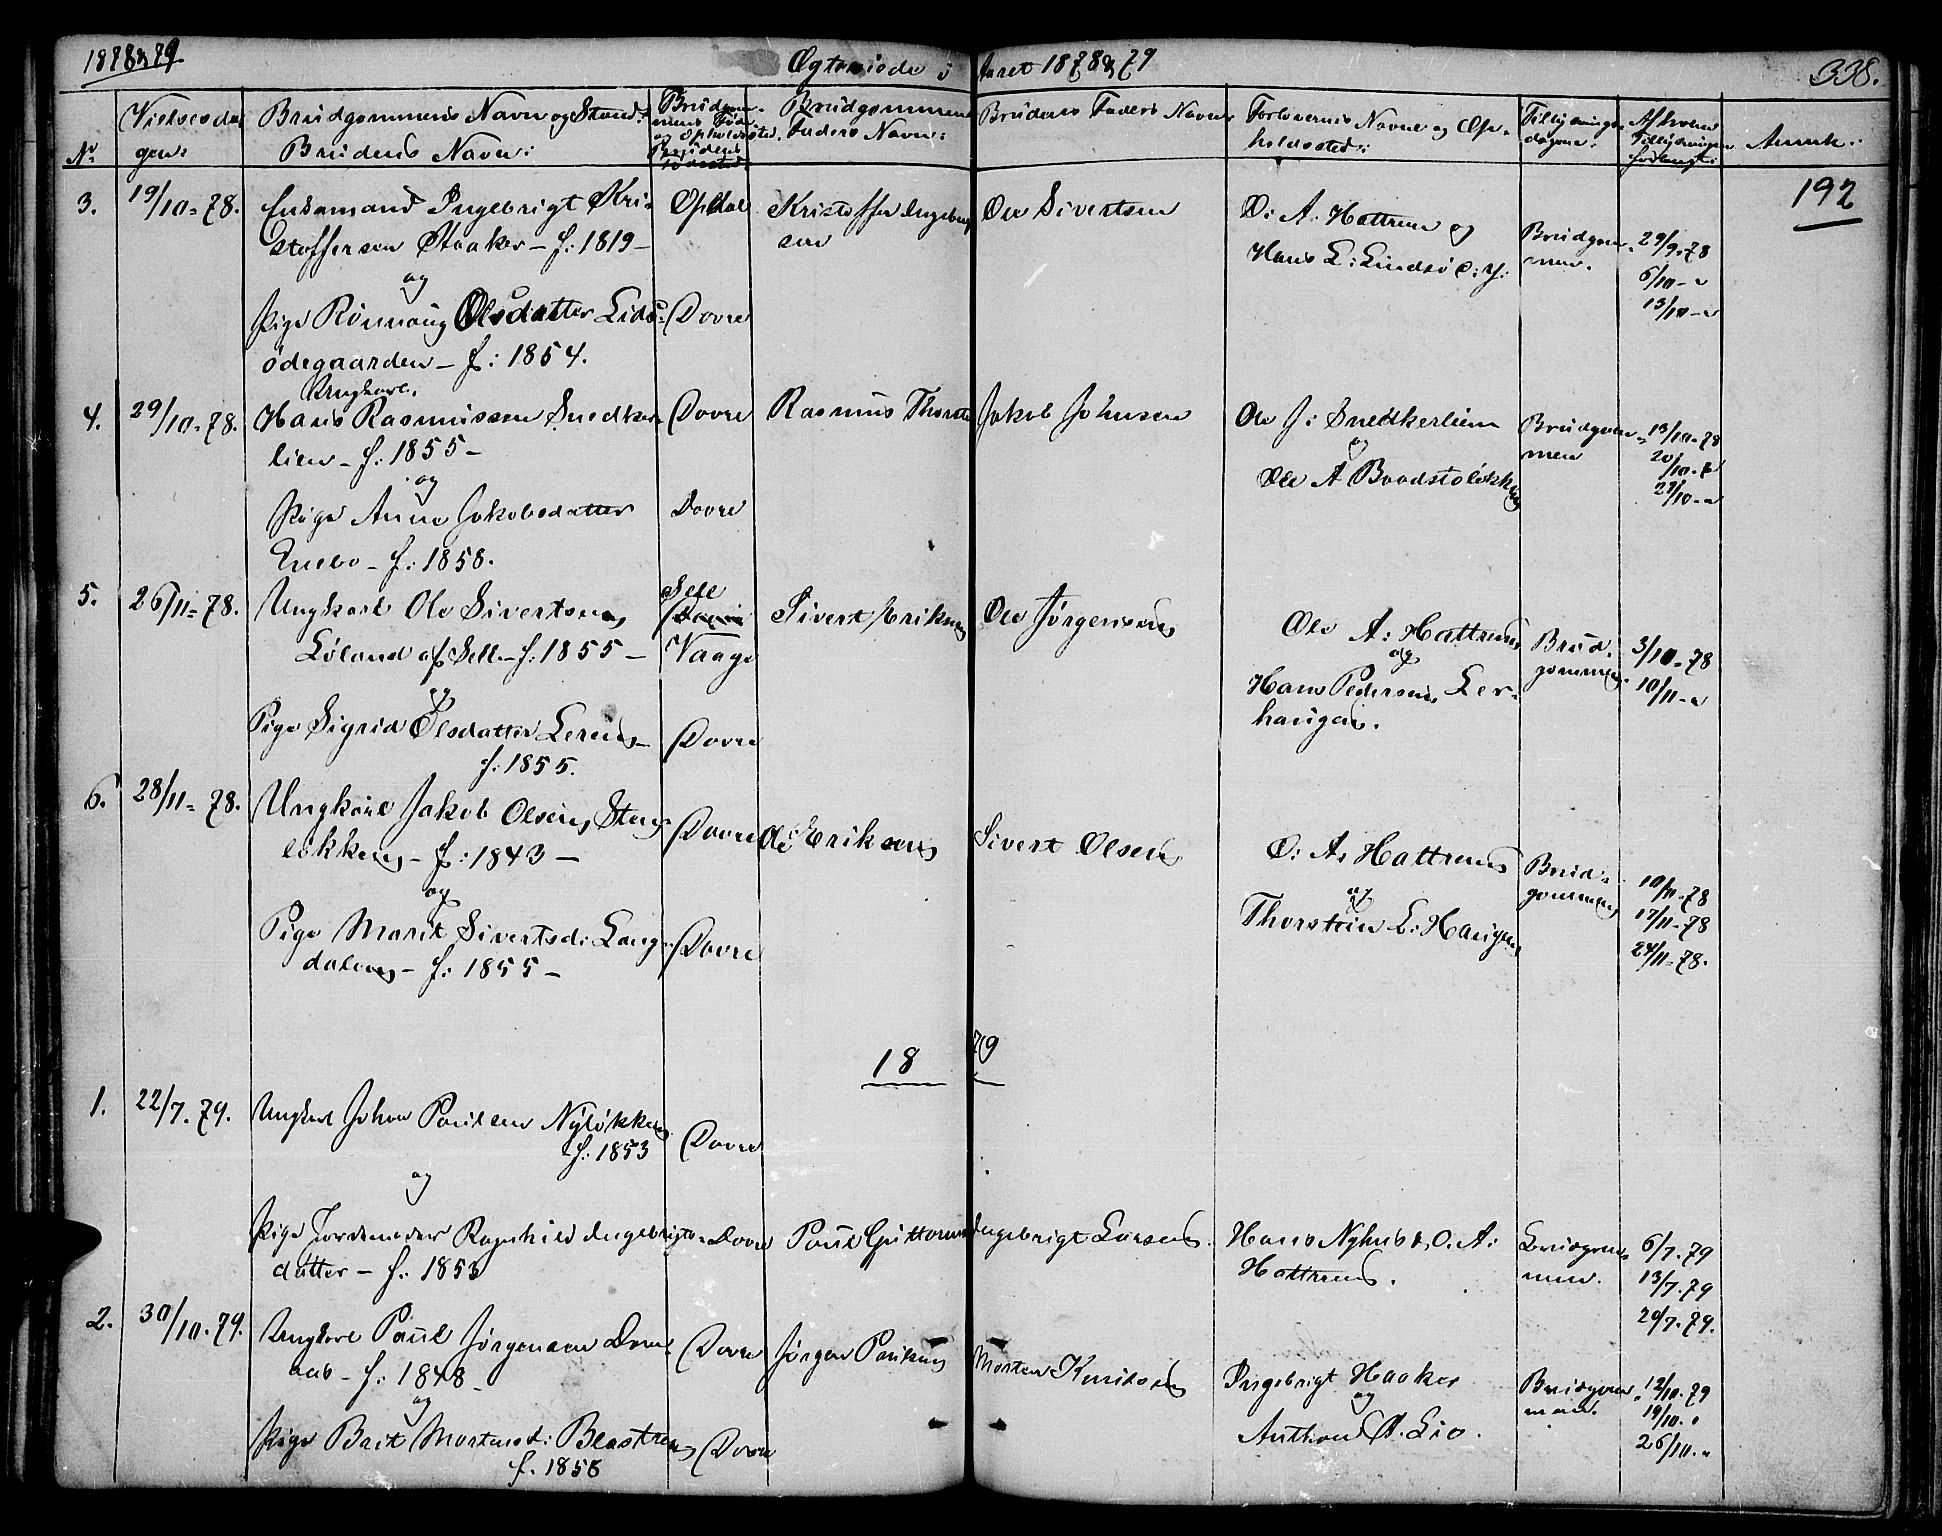 1878 & 79
Ægteviede i Aaret 1878 & 79
338.
No
Vielsesda
gen:
Brudgommens Navn og Stand:
Brudens Navn:
Brudgom-
mens Føde-
og Opholdssted.
Brudens
Fødested:
Brudgommens
Faders Navn:
Brudens Faders Navn:
Forlovernes Navne og Op-
holdssted:
Tillysnings-
dagene:
Af hvem
Tillysningen
forlangt:
Anmk:
192
3.
19/10=78.
Enkemand Ingebrigt Kri-
stoffersen Haaker – f: 1819 –
og
Pige Rönnaug Olsdatter Lids-
ödegaarden – f: 1854.
Opdal
Dovre
Kristoffer Ingebrigt
sen
Ole Sivertsen
O: A: Hattrem og
Hans L: Lindsö
Brudgom-
men.
29/9-78
6/10 - "
13/10 - "
4.
29/10-78.
Ungkarl.
Hans Rasmussen Snedker-
lien – f: 1855 –
og
Pige Anne Jakobsdatter
Enebo – f: 1858.
Dovre
Dovre
Rasmus Thorste
Jakob Johnsen
Ole J: Snedkerlien
og
Ole A
Brudgom-
men
13/10-78
20/10-"
27/10-"
5.
26/11=78.
Ungkarl Ole Sivertsen
Löland af Sell – f: 1855 –
og
Pige Sigrid Olsdatter Leren –
f: 1855.
Sell
Vaage
Dovre
Sivert Eriksen
Ole Jörgensen
Ole A: Hattrem
og
Hans Pedersen Ler-
haugen.
Brud-
gommen
3/10-78
10/11-"
6.
28/11=78.
Ungkarl Jakob Olsen Sten-
lökken – f: 1843 –
og
Pige Marit Sivertsd: Lang-
dalen – f: 1855 –
Dovre
Dovre
Ole Eriksen
Sivert Olsen
O: A: Hattrem
og
Thorstein L: Haugen
Brud-
gommen
10/11-78
17/11-78
24/11-78.
18 79
1.
22/7.79.
Ungkarl Johan Paulsen Nylökken
f: 1853
og
Pige Jordemoder Ragnhild Ingebrigts-
datter – f: 1853
Dovre
Dovre
Paul Guttorms
Ingebrigt Larsen.
Hans Nyhus & O. A:
Hattrem.
Brudgom-
men.
6/7.79
13/7.79
20/7.79.
2.
30/10.79.
Ungkarl Paul Jörgensen Dom-
aas – f: 1848 –
og
Pige Brit Mortensd: Blastren
f. 1858
Dovre
Dovre
Jörgen Paulsen
Morten Knudsen
Ingebrigt Haaker
og
Anthon A. Lie.
Brudgom-
men.
12/10.79
19/10."
26/10."